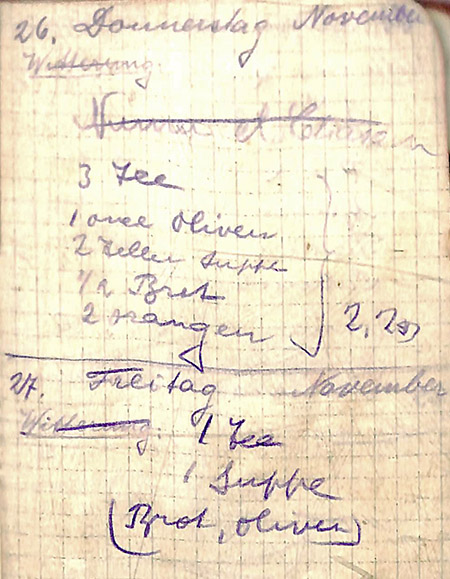 26. Donnerstag November
Witterung.
3 Tee
1 once Oliven
2 Teller Suppe
1/2 Brot
2 orangen
2,20
27. Freitag November
Witterung.
1 Tee
1 Suppe
(Brot, oliven)